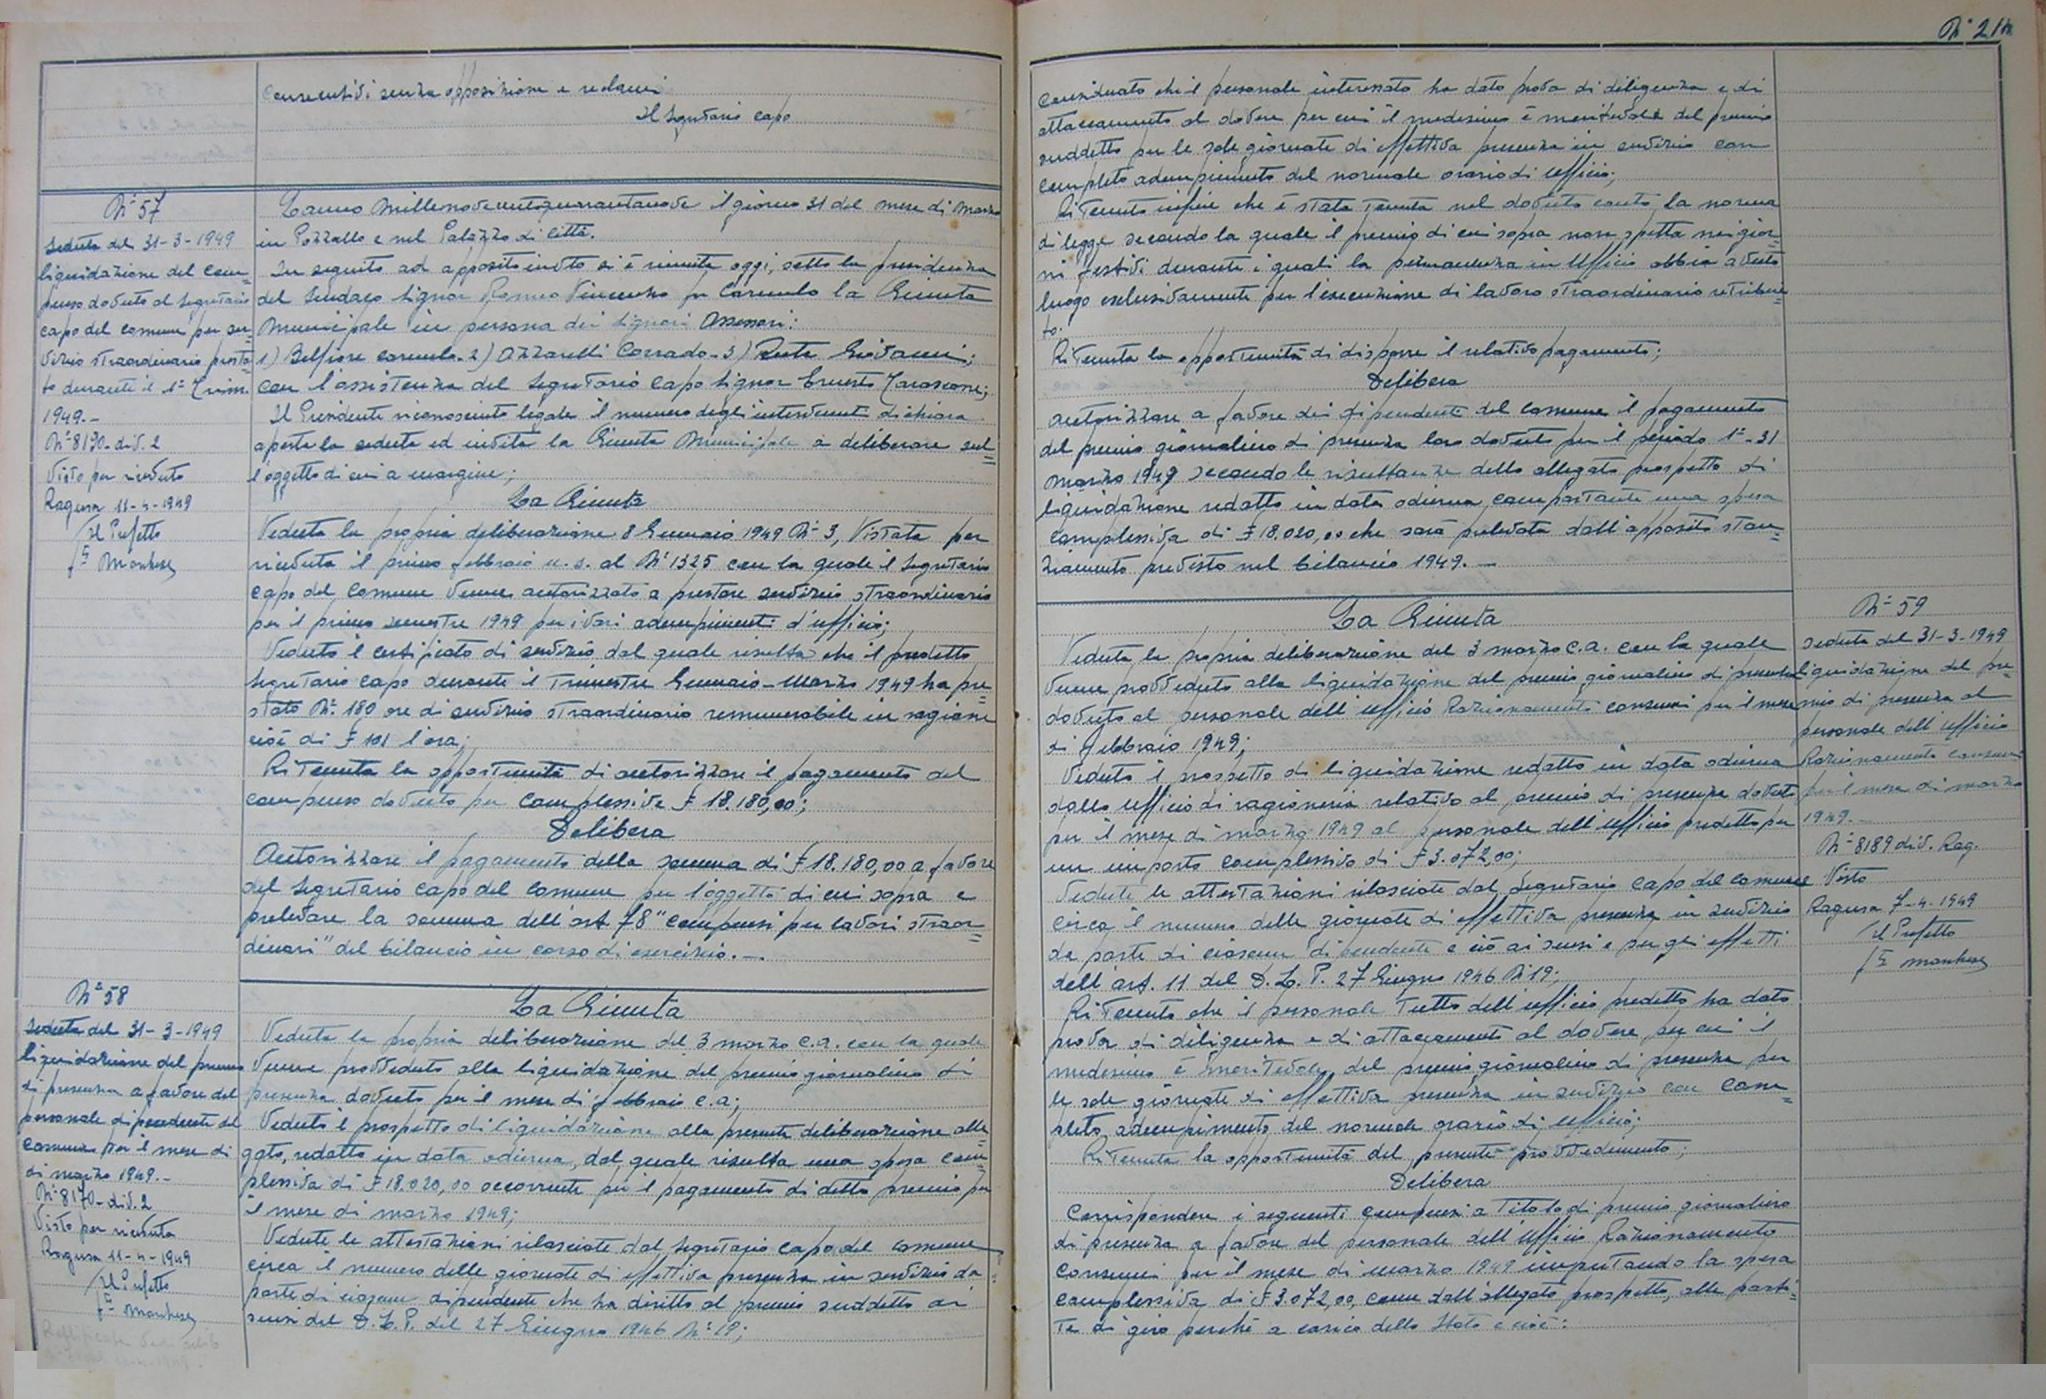 N° 214
consecutivi senza opposizione e reclami
Il Segretario capo
N° 57
Seduta del 31-3-1949
liquidazione del com=
penso dovuto al Segretario
capo del comune per ser
vizio straordinario presta=
to durante il 1° Trim.
1949.-
N° 8190-div. 2
Visto per ricevuto
Ragusa 11-4-1949
Il Prefetto
Lanno Millenovecentoquarantanove il giorno 31 del mese di Marzo
in Pozzallo e nel Palazzo di Città.
In seguito ad apposito invito si è riunita oggi, sotto la presidenza
del Sindaco Signor Romeo Vincenzo fu Carmelo la Giunta
Municipale in persona dei Signori Assessori:
1) Belfiore Carmelo-2) Azzarelli Corrado-3) Giovanni;
con l'assistenza del Segretario Capo Signor Ernesto Tarascone;
Il Presidente riconosciuto legale il numero degli intervenuti dichiara
aperta la seduta ed invita la Giunta Municipale a deliberare sul=
l'oggetto di cui a margine;
La Giunta
Veduta la propria deliberazione 8 Gennaio 1949 N° 3, Vistata per
ricevuta il primo febbraio u.s. al N° 1325 con la quale il Segretario
capo del Comune venne autorizzato a prestare servizio straordinario
per il primo semestre 1949 per i vari adempimenti d'ufficio;
Veduto il certificato di servizio dal quale risulta che il predetto
Segretario capo durante il Trimestre Gennaio-Marzo 1949 ha pre=
stato N° 180 ore di servizio straordinario remunerabile in ragione
cioè di £ 101 l'ora;
Ritenuta la opportunità di autorizzare il pagamento del
compenso dovuto per complessive £ 18.180,00;
Delibera
Autorizzare il pagamento della somma di £ 18.180,00 a favore
del Segretario Capo del Comune per l'oggetto di cui sopra e
prelevare la somma dell'art 78 "compensi per lavori straor=
dinari" del bilancio in corso di esercizio.-
N° 58
Seduta del 31-3-1949
liquidazione del premio
di presenza a favore del
personale dipendente del
comune per il mese di
di marzo 1949.-
N° 8170-div. 2
Visto per ricevuta
Ragusa 11-4-1949
Il Prefetto
La Giunta
Veduta la propria deliberazione del 3 marzo c.a. con la quale
venne provveduto alla liquidazione del premio giornaliero di
presenza dovuto per il mese di febbraio c.a;
Veduto il prospetto di liquidazione alla presente deliberazione alle=
gato, redatto in data odierna, dal quale risulta una spesa com=
plessiva di £ 18.020,00 occorrente per il pagamento di detto premio per
il mese di marzo 1949;
Vedute le attestazioni rilasciate dal Segretario capo del comune
circa il numero delle giornate di effettiva presenza in servizio da
parte di ciascun dipendente che ha diritto al premio suddetto ai
sensi del D.L.P. del 27 Giugno 1946 N° 19;
considerato che il personale interessato ha dato prova di diligenza e di
attaccamento al dovere per cui il medesimo è meritevole del premio
suddetto per le sole giornate di effettiva presenza in servizio con
completo adempimento del normale orario di ufficio;
Ritenuto infine che è stata tenuta nel dovuto conto la norma
di legge secondo la quale il premio di cui sopra non spetta nei gior=
ni festivi durante i quali la permanenza in Ufficio abbia avuto
luogo esclusivamente per l'esecuzione di lavoro straordinario retribui=
to.
Ritenuta la opportunità di disporre il relativo pagamento;
Delibera
Autorizzare a favore dei dipendenti del comune il pagamento
del premio giornaliero di presenza loro dovuto per il periodo 1°-31
Marzo 1949 secondo le risultanze dello allegato prospetto di
liquidazione redatto in data odierna comportante una spesa
complessiva di £ 18.020,00 che sarà prelevata dall'apposito stan=
ziamento previsto nel bilancio 1949.-
La Giunta
Veduta la propria deliberazione del 3 marzo c.a. con la quale
venne provveduto alla liquidazione del premio giornaliero di presenza
dovuto al personale dell'ufficio Razionamento consumi per il mese
di febbraio 1949;
Veduto il prospetto di liquidazione redatto in data odierna
dallo ufficio di ragioneria relativo al premio di presenza dovuto
per il mese di marzo 1949 al personale dell'ufficio predetto per
un importo complessivo di £ 3.072,00;
Vedute le attestazioni rilasciate dal Segretario Capo del comune
circa il numero delle giornate di effettiva presenza in servizio
da parte di ciascun dipendente e ciò ai sensi e per gli effetti
dell'art. 11 del D.L.P. 27 Giugno 1946 N° 19;
Ritenuto che il personale Tutto dell'ufficio predetto ha dato
prova di diligenza e di attaccamento al dovere per cui il
medesimo è meritevole del premio giornaliero di presenza per
le sole giornate di effettiva presenza in servizio con com=
pleto adempimento del normale orario di ufficio;
Ritenuta la opportunità del presente provvedimento;
Delibera
Corrispondere i seguenti compensi a Titolo di premio giornaliero
di presenza a favore del personale dell'Ufficio Razionamento
Consumi per il mese di marzo 1949 imputando la spesa
complessiva di £ 3.072,00, come dall'allegato prospetto, alle parti=
te di giro perché a carico dello Stato e cioè:
N° 59
Seduta del 31-3-1949
liquidazione del pre=
mio di presenza al
personale dell'ufficio
Razionamento consumi
per il mese di marzo
1949.-
N° 8189 div. Rag.
Visto
Ragusa 7-4-1949
Il Prefetto